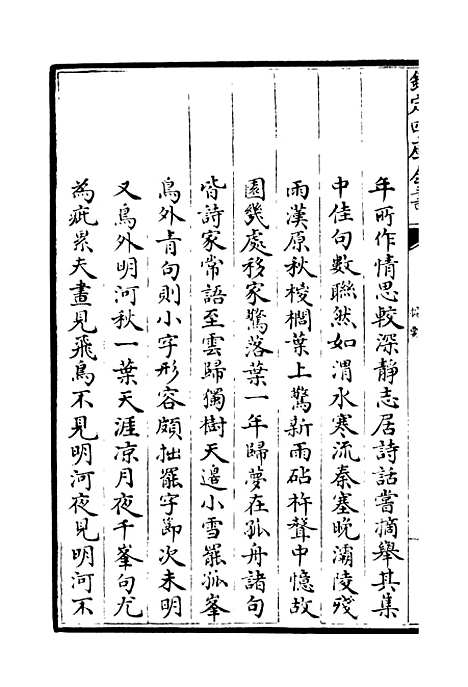 欽定四庫全書
提要
年所作情思較深静志居詩話嘗摘舉其集
中佳句數聯然如渭水寒流秦塞晚灞陵殘
雨漢原秋椶櫚葉上驚新雨砧杵聲中憶故
園幾處移家驚落葉一年歸夢在孤舟諸句
皆詩家常語至雲歸獨樹天邉小雪罷孤峯
鳥外青句則小字形容頗拙罷字節次未明
又鳥外明河秋一葉天涯凉月夜千峯句尤
為疵累夫晝見飛鳥不見明河夜見明河不